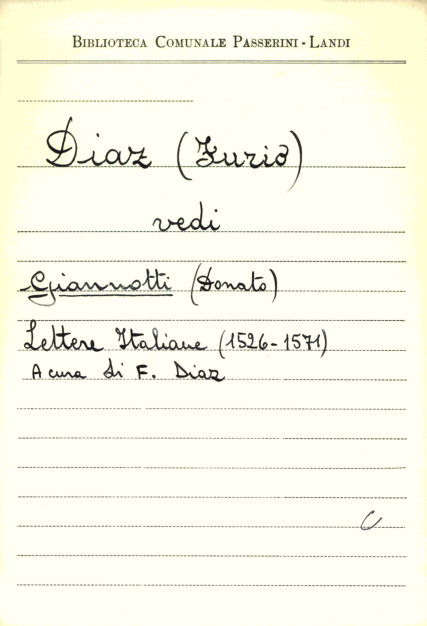 BIBLIOTECA COMUNALE PASSERINI - LANDI
Diaz (Furio)
vedi
Giannotti (Donato)
Lettere Italiane (1526-1571)
A cura di F. Diaz